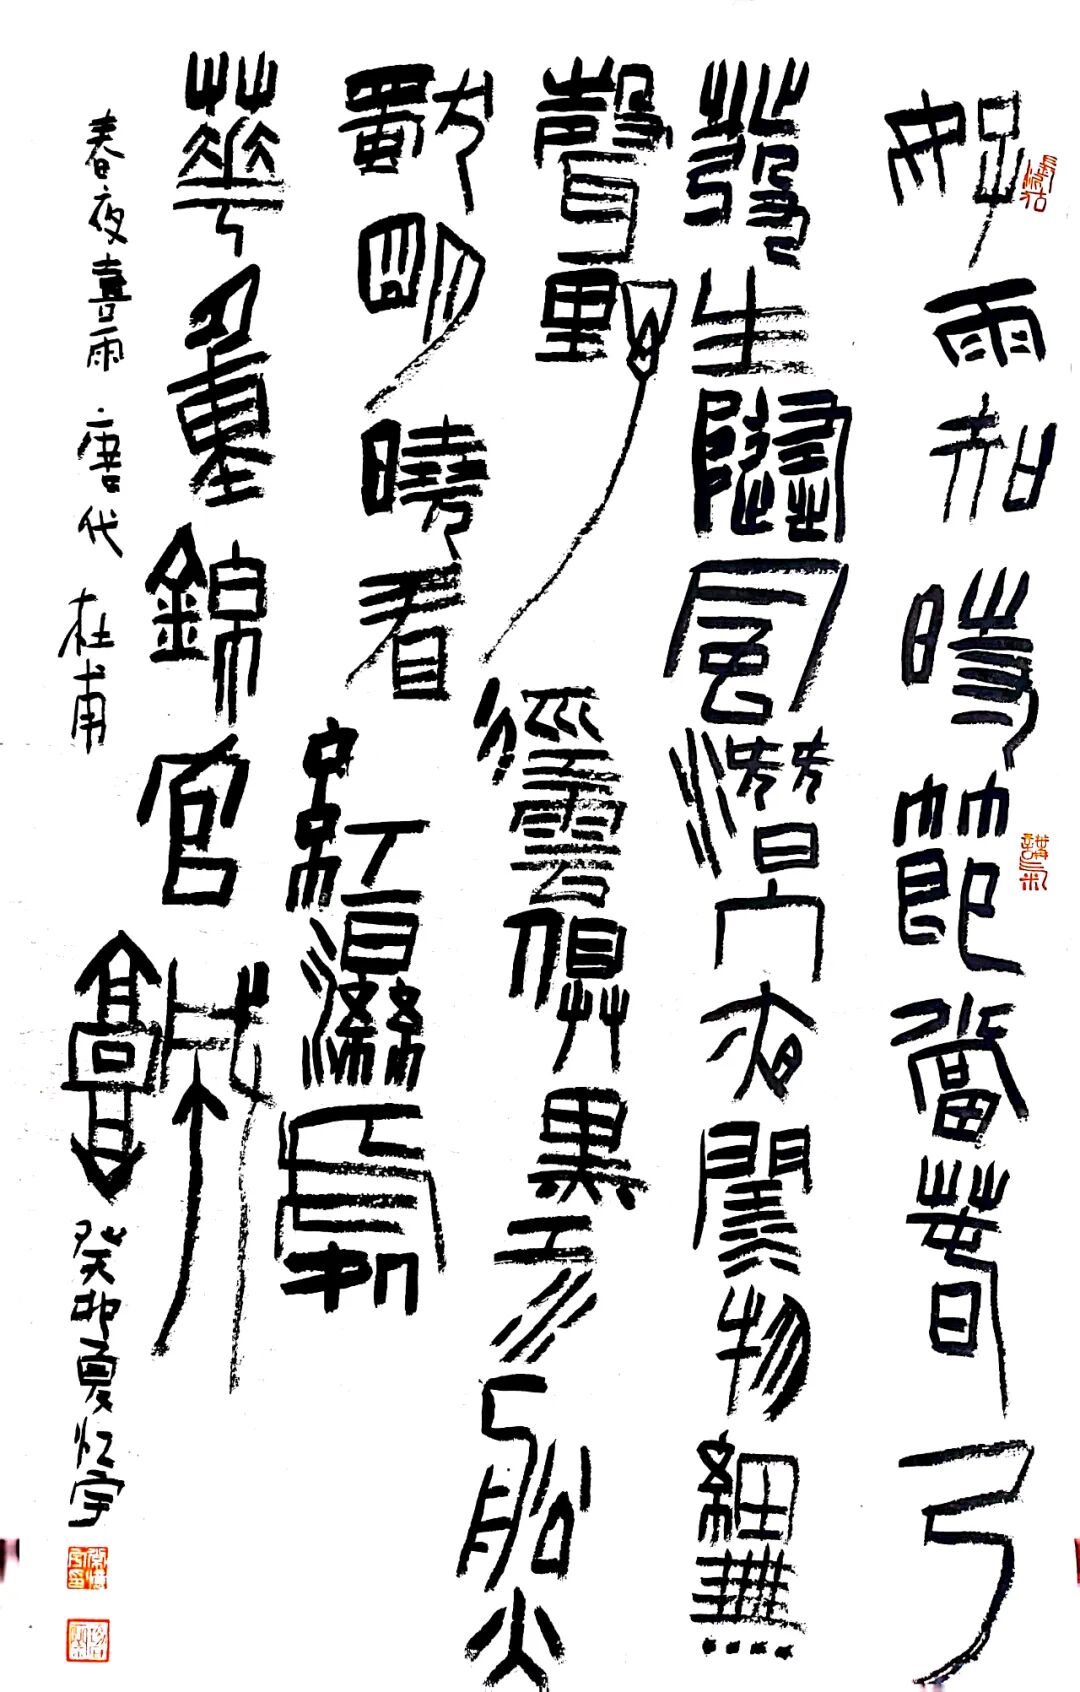 好雨知時節當春乃
發生隨風潛入夜潤物細無
聲野徑雲俱黑江船火
獨明曉看紅濕處
華重錦官城
春夜喜雨 唐代 杜甫
癸卯夏